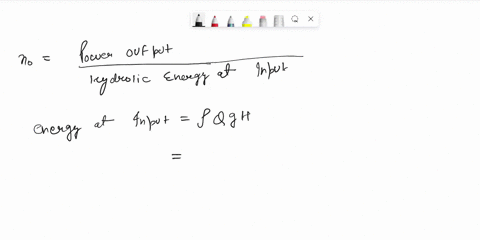 η₀ = Power output
Hydrolic Energy at Input
energy at Input = ρQgH
=